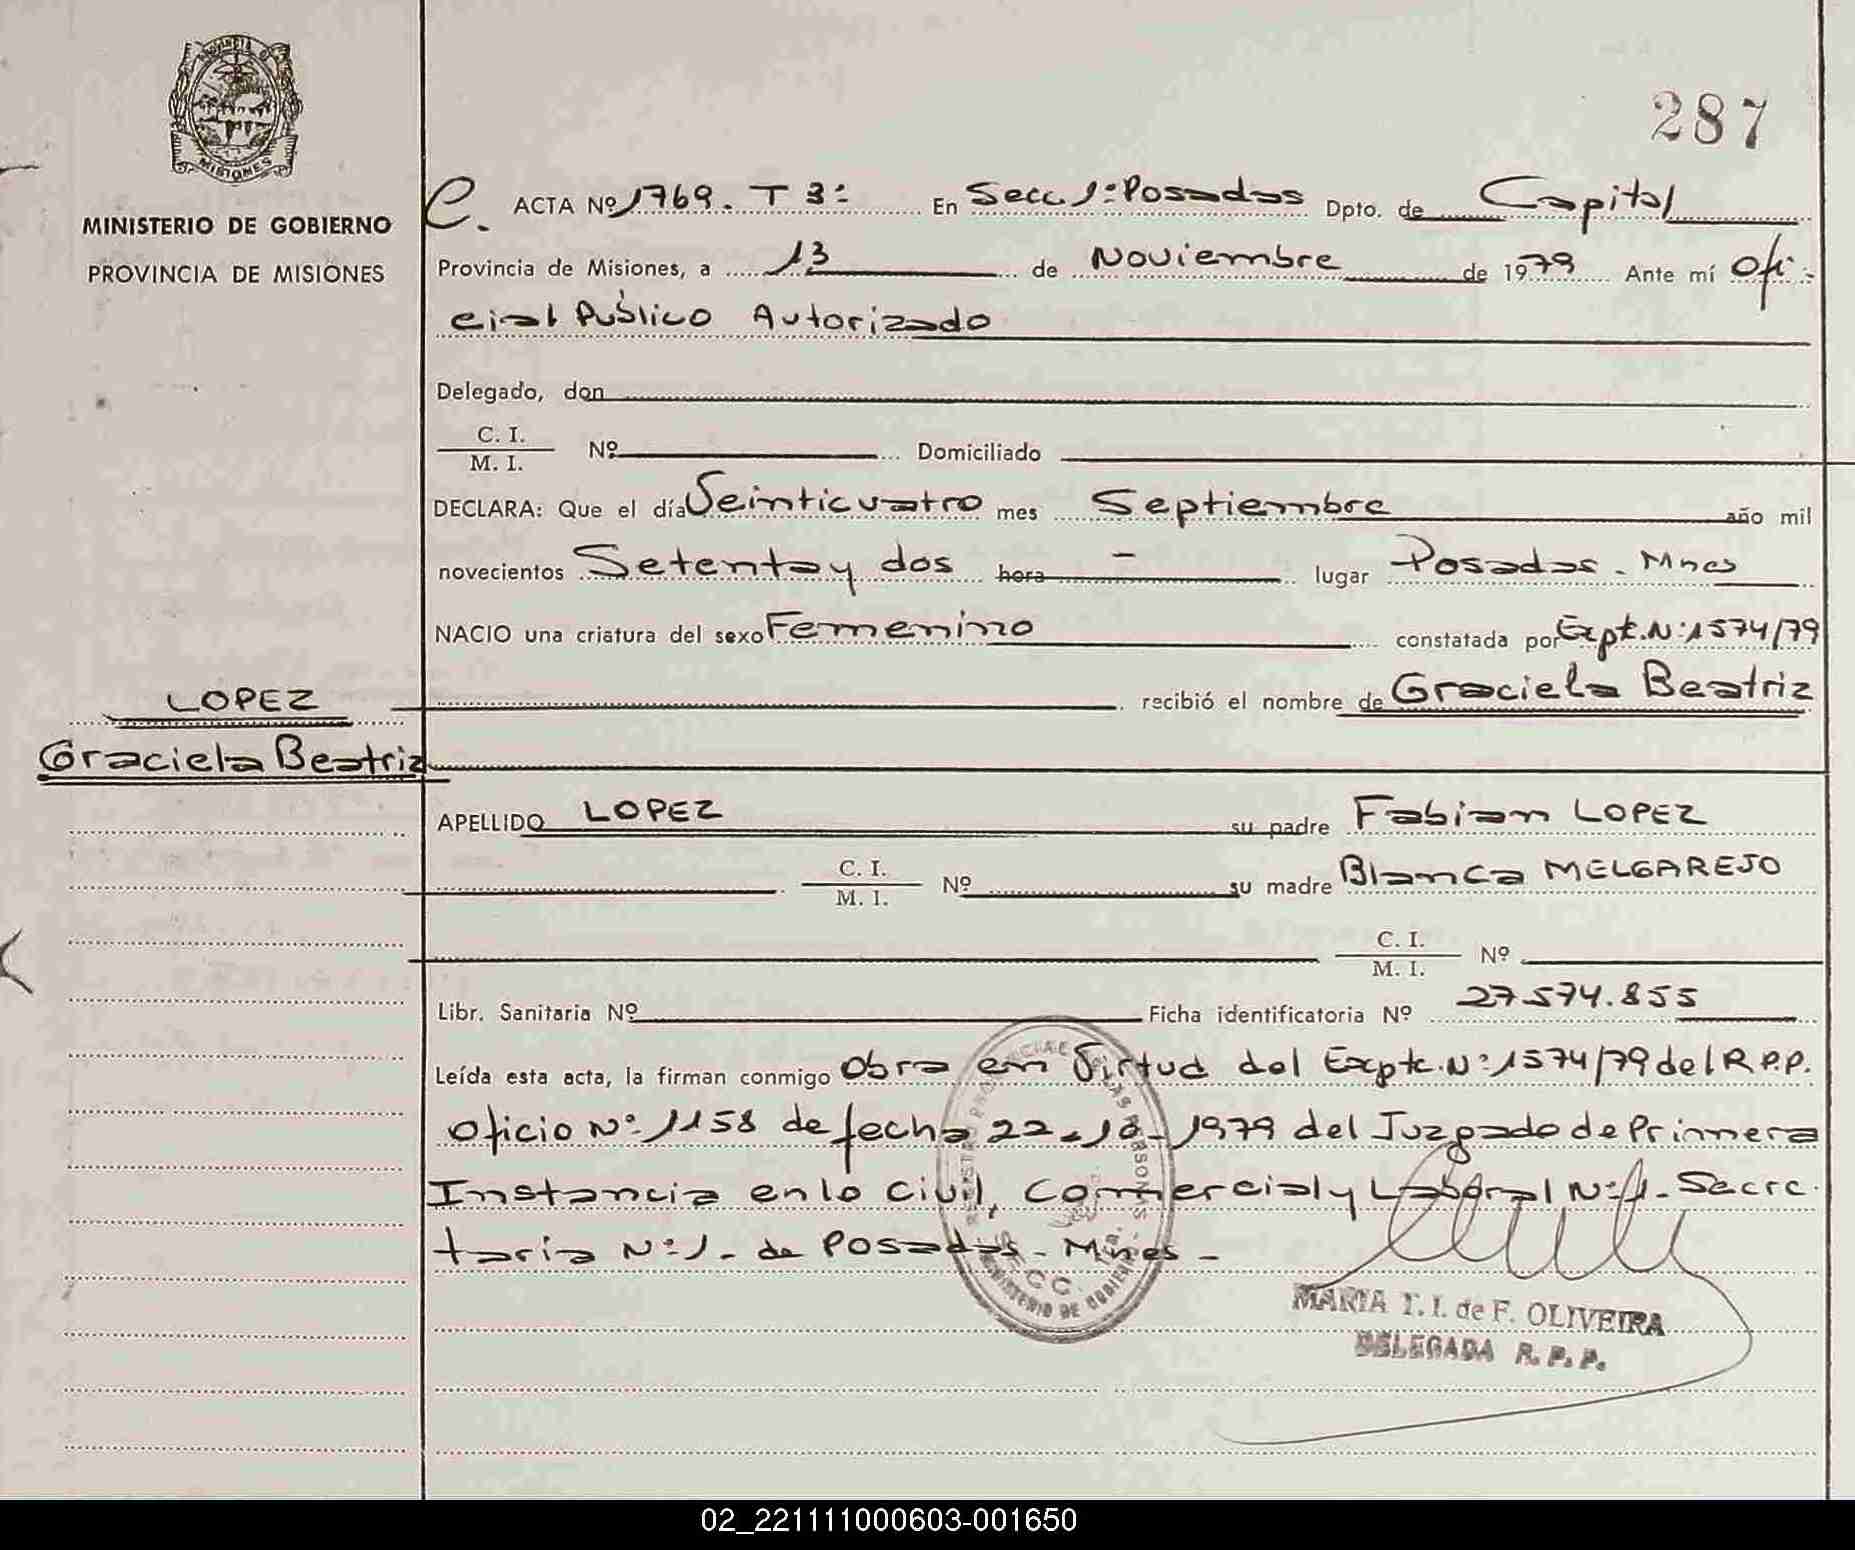 PROVINCIA DE
MISIONES
MINISTERIO DE GOBIERNO
PROVINCIA DE MISIONES
287
C. ACTA Nº 1769. T 3º En Secc. 1º Posadas Dpto. de Capital
Provincia de Misiones, a 13 de Noviembre de 1979 Ante mí Ofi-
cial Público Autorizado
Delegado, don
C. I.
M. I. Nº Domiciliado
DECLARA: Que el día Veinticuatro mes Septiembre año mil
novecientos Setenta y dos hora - lugar Posadas - Mnes
NACIO una criatura del sexo Femenino constatada por Expte. Nº 1574/79
recibió el nombre de Graciela Beatriz
LOPEZ
Graciela Beatriz
APELLIDO LOPEZ su padre Fabian LOPEZ
C. I.
M. I. Nº su madre Blanca MELGAREJO
C. I.
M. I. Nº
Libr. Sanitaria Nº Ficha identificatoria Nº 27.574.855
Leída esta acta, la firman conmigo Obra en Virtud del Expte. Nº 1574/79 del R.P.P.
Oficio Nº 1158 de fecha 22-10-1979 del Juzgado de Primera
Instancia en lo Civil, Comercial y Laboral Nº 1- Secre-
taria Nº 1- de Posadas - Mnes -
MINISTERIO DE GOBIERNO
SECC. 1ra.
MARIA T. I. de F. OLIVEIRA
DELEGADA R. P. P.
02_221111000603-001650